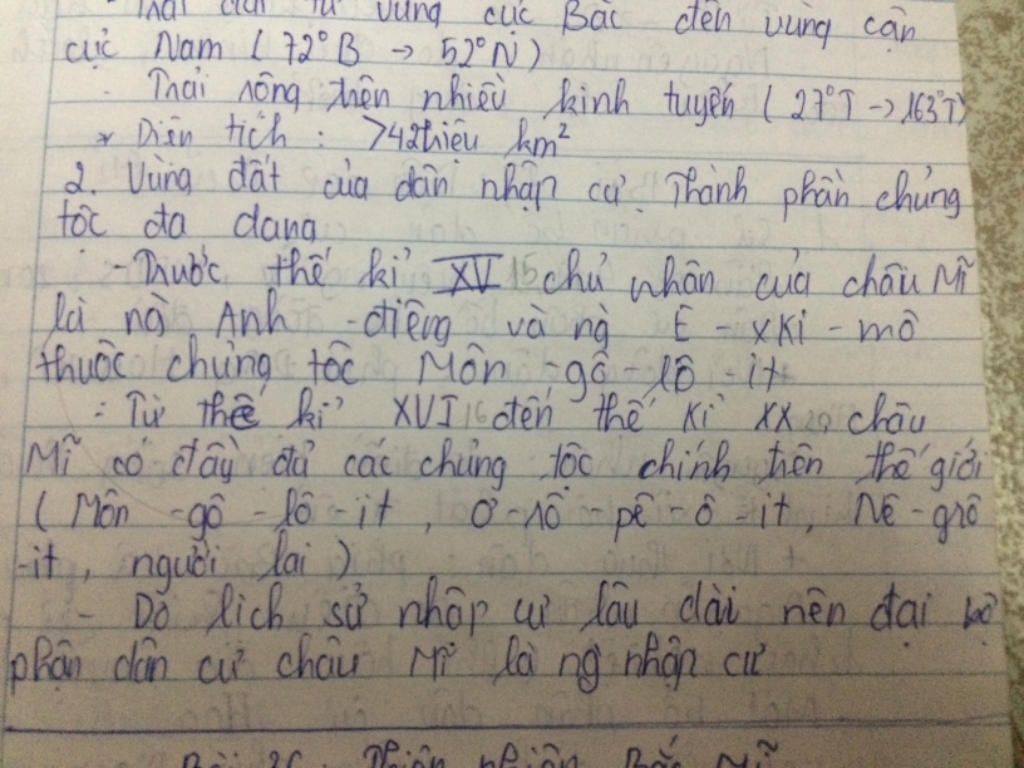 Trải dài từ vùng cực Bắc đến vùng cận
cực Nam ( 72°B → 52°N )
Trải rông trên nhiều kinh tuyến ( 27°T → 163°T)
* Diện tích : >42triệu km²
2. Vùng đất của dân nhập cư. Thành phần chủng
tôc đa dang
- Trước thế kỉ XV 15 chủ nhân của châu Mĩ
là ng Anh - điêng và ng E - xki - mô
thuôc chủng tôc Môn - gô - lô - it
- Từ thế kỉ XVI 16 đến thế kỉ XX châu
Mĩ có đầy đủ các chủng tộc chính trên thế giới
( Môn - gô - lô - it , Ơ - rô - pê - ô - it, Nê - grô
- it, người lai )
- Do lich sử nhập cư lâu dài nên đại bộ
phận dân cư châu Mĩ là ng nhập cư
Thiên nhiên Bắc Mĩ